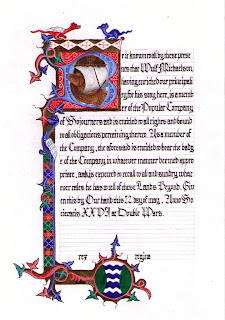 Be it known all by these prese
nts that Wulf Michaelson,
having enriched our principali
ty for his song here, is a memb
er of the Popular Company
of Sojourners and is entitled to all rights and bound
to all obligations pertaining thereto. As a member of
the Company, the aforesaid is entitled to bear the badg
e of the Company in whatsoever manner deemed appro
priate, and is expected to recall to all and sundry what
ever tales he has well of these Lands Beyond. Giv
en this by Our hand this 22 day of may, Anno So
cietatis XXVII at Double Wars.
rex regina